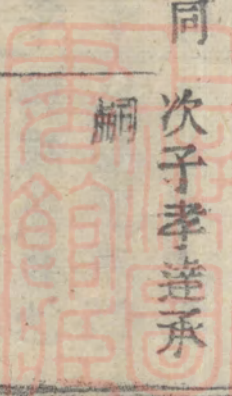 同
次子孝達承
嗣